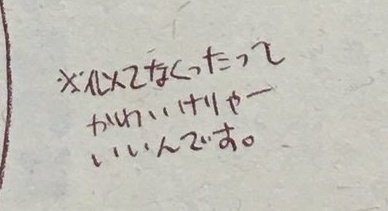 ※似てなくったって
かわいけりゃー
いいんです。